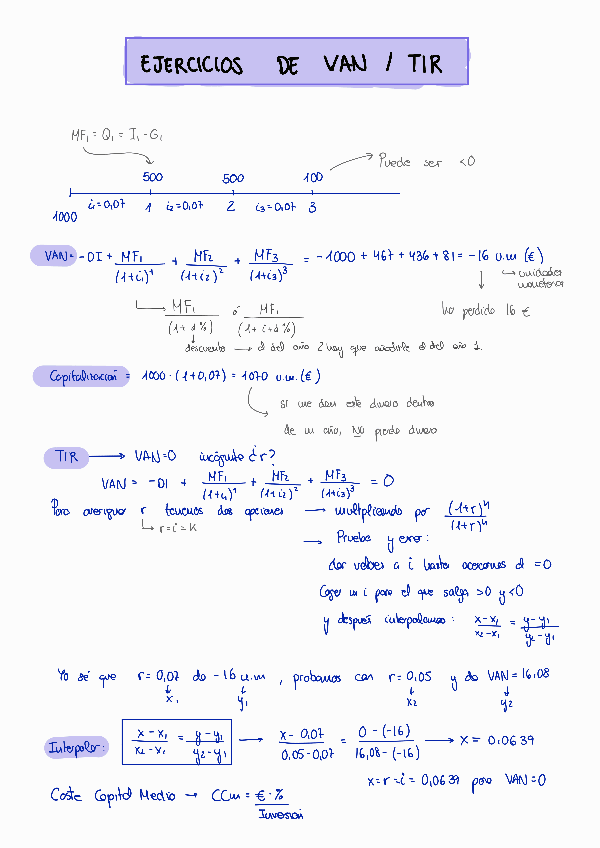 EJERCICIOS DE VAN / TIR
MF₁ = Q₁ = I₁ - G₁
500 500 100 Puede ser <0
i₁=0,07 1 i₂=0,07 2 i₃=0,07 3
1000
VAN = -DI + MF₁/(1+i)¹ + MF₂/(1+i₂)² + MF₃/(1+i₃)³ = -1000 + 467 + 436 + 81 = -16 u.m (€)
unidades monetarias
MF₁/(1+d%) ó MF₁/(1+i+d%) ha perdido 16 €
descuento → d del año 2 hay que añadirle d del año 1.
Capitalización = 1000 · (1+0,07) = 1070 u.m.(€)
si me dan este dinero dentro
de un año, NO pierdo dinero
TIR → VAN=0 incógnita ¿r?
VAN = -DI + MF₁/(1+i₁)¹ + MF₂/(1+i₂)² + MF₃/(1+i₃)³ = 0
Para averiguar r tenemos dos opciones → multiplicando por (1+r)ⁿ/(1+r)ⁿ
r=i=K
→ Prueba y error:
dar valores a i hasta acercarnos al =0
Coger un i para el que salga >0 y <0
y después interpolamos: x-x₁/x₂-x₁ = y-y₁/y₂-y₁
Yo sé que r=0,07 da -16 u.m, probamos con r=0,05 y da VAN=16,08
x₁ y₁ x₂ y₂
Interpolar: x-x₁/x₂-x₁ = y-y₁/y₂-y₁ → x-0,07/0,05-0,07 = 0-(-16)/16,08-(-16) → x = 0,0639
x=r=i=0,0639 para VAN=0
Coste Capital Medio → CCM = €·%/Inversión